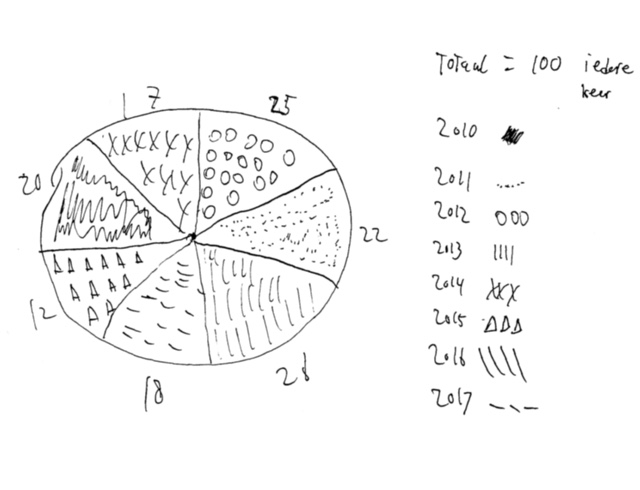 17
25
20
22
12
28
18
Totaal = 100 iedere
keer
2010
2011
2012
2013
2014
2015
2016
2017